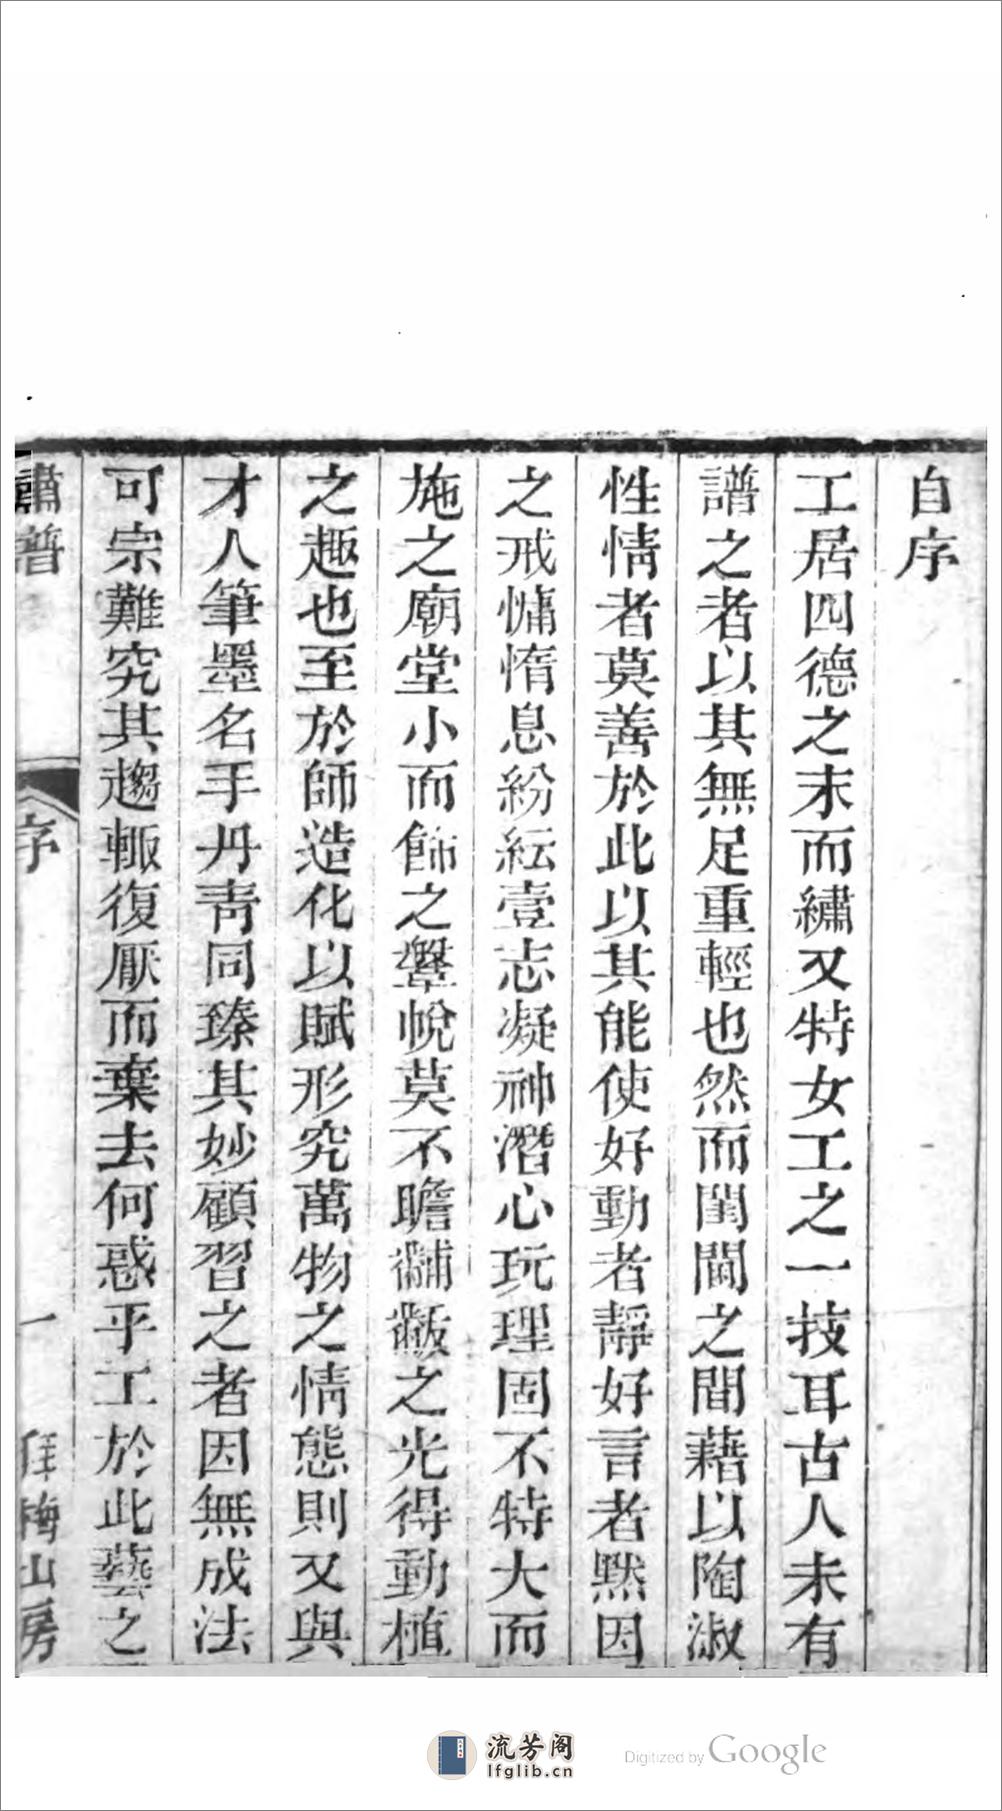 自序
工居四德之末而繡又特女工之一技耳古人未有
譜之者以其無足重輕也然而閨閫之間藉以陶淑
性情者莫善於此以其能使好動者靜好言者默因
之戒慵惰息紛紜壹志凝神潛心玩理固不特大而
施之廟堂小而飾之鞶帨莫不瞻黼黻之光得動植
之趣也至於師造化以賦形究萬物之情態則又與
才人筆墨名手丹青同臻其妙顧習之者因無成法
可宗難究其趨輒復厭而棄去何惑乎工於此藝之
繡譜
序
一
梅山房
流芳阁
lfglib.cn
Digitized by Google